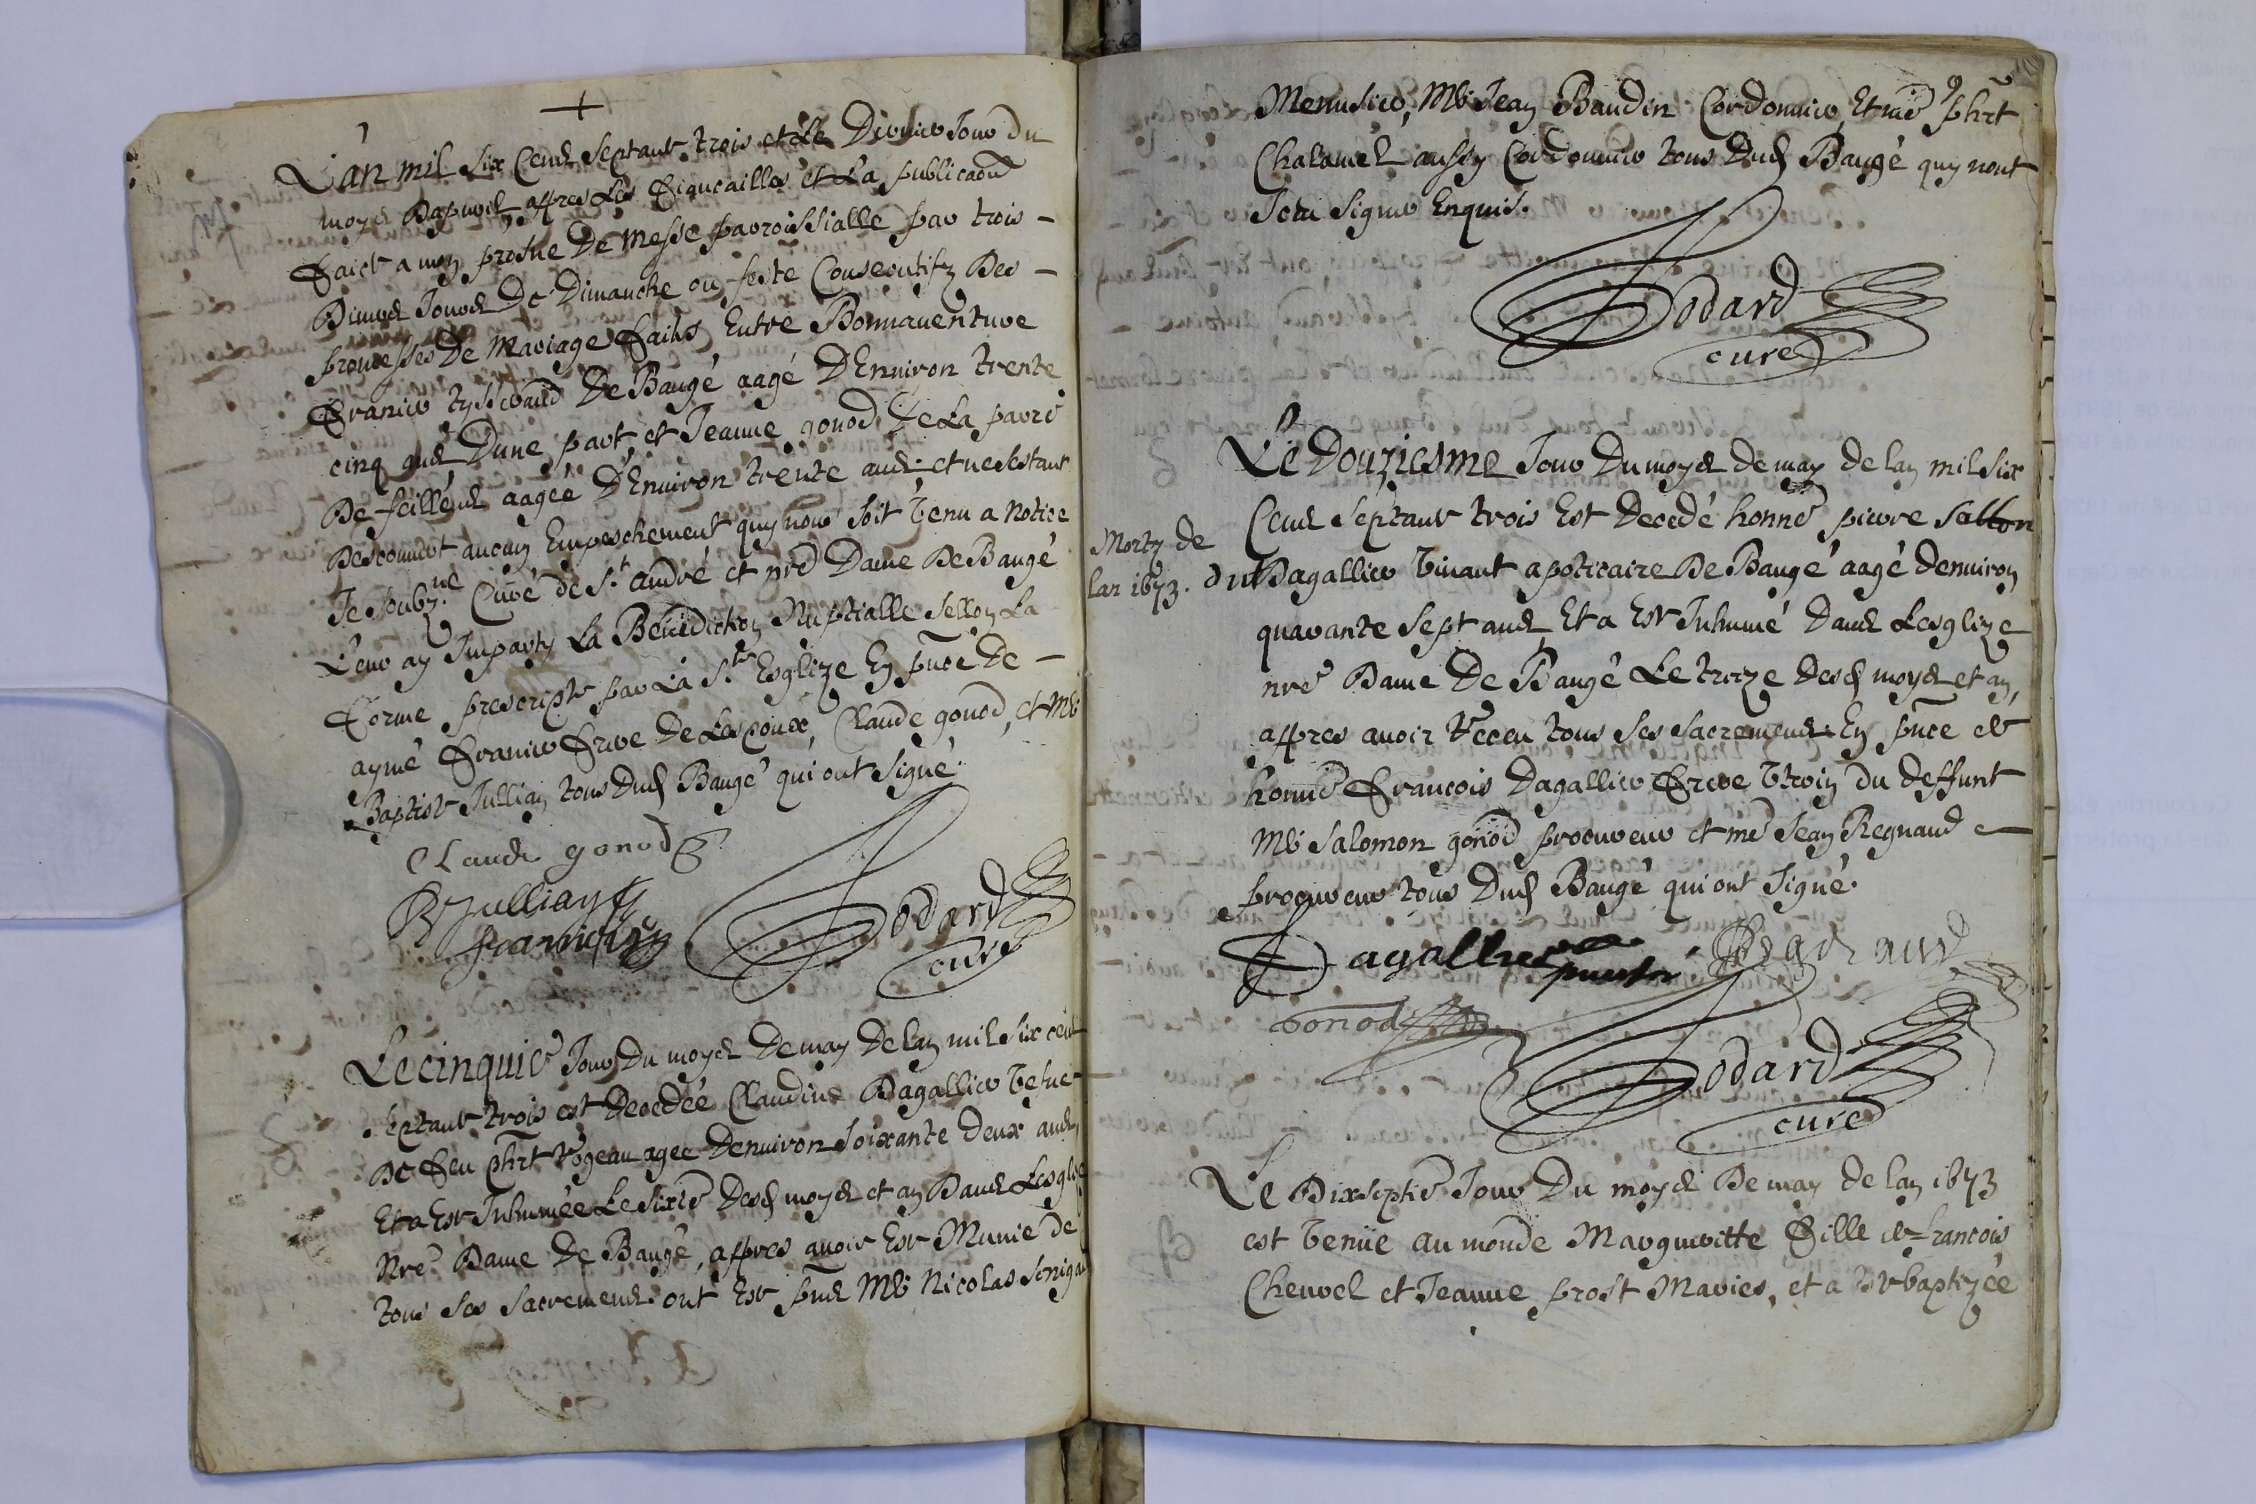 L'an mil six Cens septante trois et Le Dernier Jour du
moys Dapvril appres Les fiancailles et La publicaon
Faict a mon prosne De Messe parroissialle par trois
Divers Jours De Dimanche ou feste Consecutifz Des
promesses De Mariage Faites Entre Bonnaventure
Franier de Baugé aagé D'Environ trente
cinq ans Dune part, et Jeanne gonod De La parre
De feillens aagée D'Environ trente ans et ne sestant
Descouvert aucun Empeschement quy nous soit venu a Notice
Je soubz.né Curé de St. André et nre Dame De Baugé
Leur ay Imparty La Benediction Nuptialle sellon La
Forme prescripte par La Ste Esglize En pnce De
aymé Franier Frere De Claude gonod, et Me
Baptiste Jullian tous Dud Baugé qui ont signé.
Claude gonod
B Jullian
Franier
Dodard
curé
Le cinquie Jour Du moys De may De lan mil six cens
septante trois est Decedée Claudine Dagallier vefve
De Feu phrt agee Denviron soixante deux ans
Et a Est Inhumée Le sixie Desd moys et an Dans Lesglise
Nre Dame De Baugé, appres avoir Est Munie de
tous ses sacremens ont Est pns Me Nicolas
Menusier, Me Jean Baudin Cordonnier, Et me phrt
Chalamel aussy Cordonnier tous Dud Baugé quy nont
sceu signer Enquis.
Dodard
curé
Morts de
lan 1673.
Le Douziesme Jour Du moys de may de lan mil six
Cens septante trois Est Decedé honne pierre
Dagallier vivant apoticaire De Baugé aagé denviron
quarante sept ans Et a Est Inhumé Dans Lesglize
nre Dame De Baugé Le treze desd moys et an,
appres avoir receu tous ses sacremens En pnce de
honne François Dagallier Frere du deffunt
Me Salomon gonod procureur et me Jean Regnaud
procureur tous Dud Baugé qui ont signé.
Dagallier
gonod
Dodard
curé
Le Dixseptie Jour Du moys De may de lan 1673
est venüe au monde Margueritte Fille de francois
Chevrel et Jeanne prost Maries, et a Est baptizée